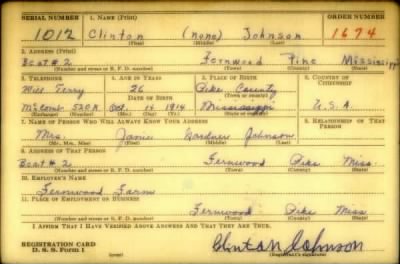 SERIAL NUMBER 1. NAME (Print) ORDER NUMBER
1012 Clinton (none) Johnson 1674
(First) (Middle) (Last)
2. ADDRESS (Print)
Beat #2 Fernwood Pike Mississippi
(Number and street or R. F. D. number) (Town) (County) (State)
3. TELEPHONE 4. AGE IN YEARS 5. PLACE OF BIRTH 6. COUNTRY OF CITIZENSHIP
Will Terry 26 Pike County
DATE OF BIRTH (Town or county)
McComb 520R Oct. 14 1914 Mississippi U.S.A.
(Exchange) (Number) (Mo.) (Day) (Yr.) (State or country)
7. NAME OF PERSON WHO WILL ALWAYS KNOW YOUR ADDRESS 8. RELATIONSHIP OF THAT PERSON
Mrs. Janie Gardner Johnson
(Mr., Mrs., Miss) (First) (Middle) (Last)
9. ADDRESS OF THAT PERSON
Beat #2 Fernwood Pike Miss.
(Number and street or R. F. D. number) (Town) (County) (State)
10. EMPLOYER'S NAME
Fernwood Farm
11. PLACE OF EMPLOYMENT OR BUSINESS
Fernwood Pike Miss
(Number and street or R. F. D. number) (Town) (County) (State)
I AFFIRM THAT I HAVE VERIFIED ABOVE ANSWERS AND THAT THEY ARE TRUE.
REGISTRATION CARD
D. S. S. Form 1 Clinton Johnson
(Registrant's signature)